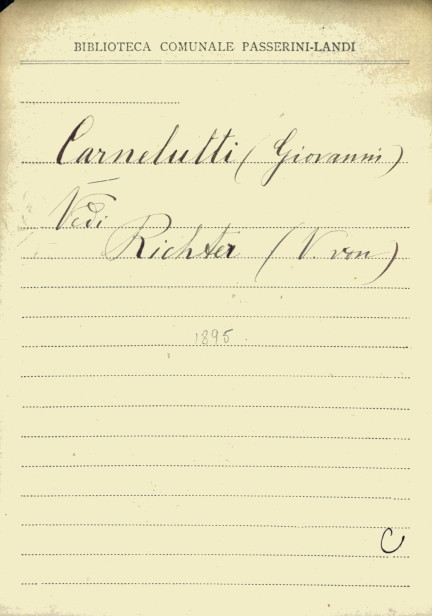 BIBLIOTECA COMUNALE PASSERINI-LANDI
Carnelutti (Giovanni)
Vedi
Richter (V. von)
1895.
C